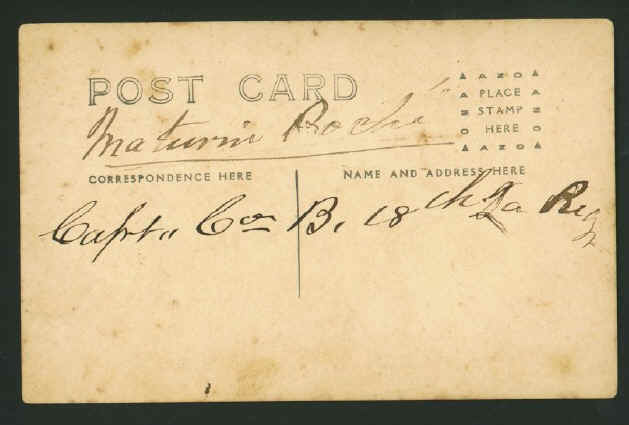 POST CARD
▲ AZO ▲
PLACE
STAMP
HERE
▲ AZO ▲
Maturin Roché
CORRESPONDENCE HERE
NAME AND ADDRESS HERE
Capt. Co. B, 18th La Reg